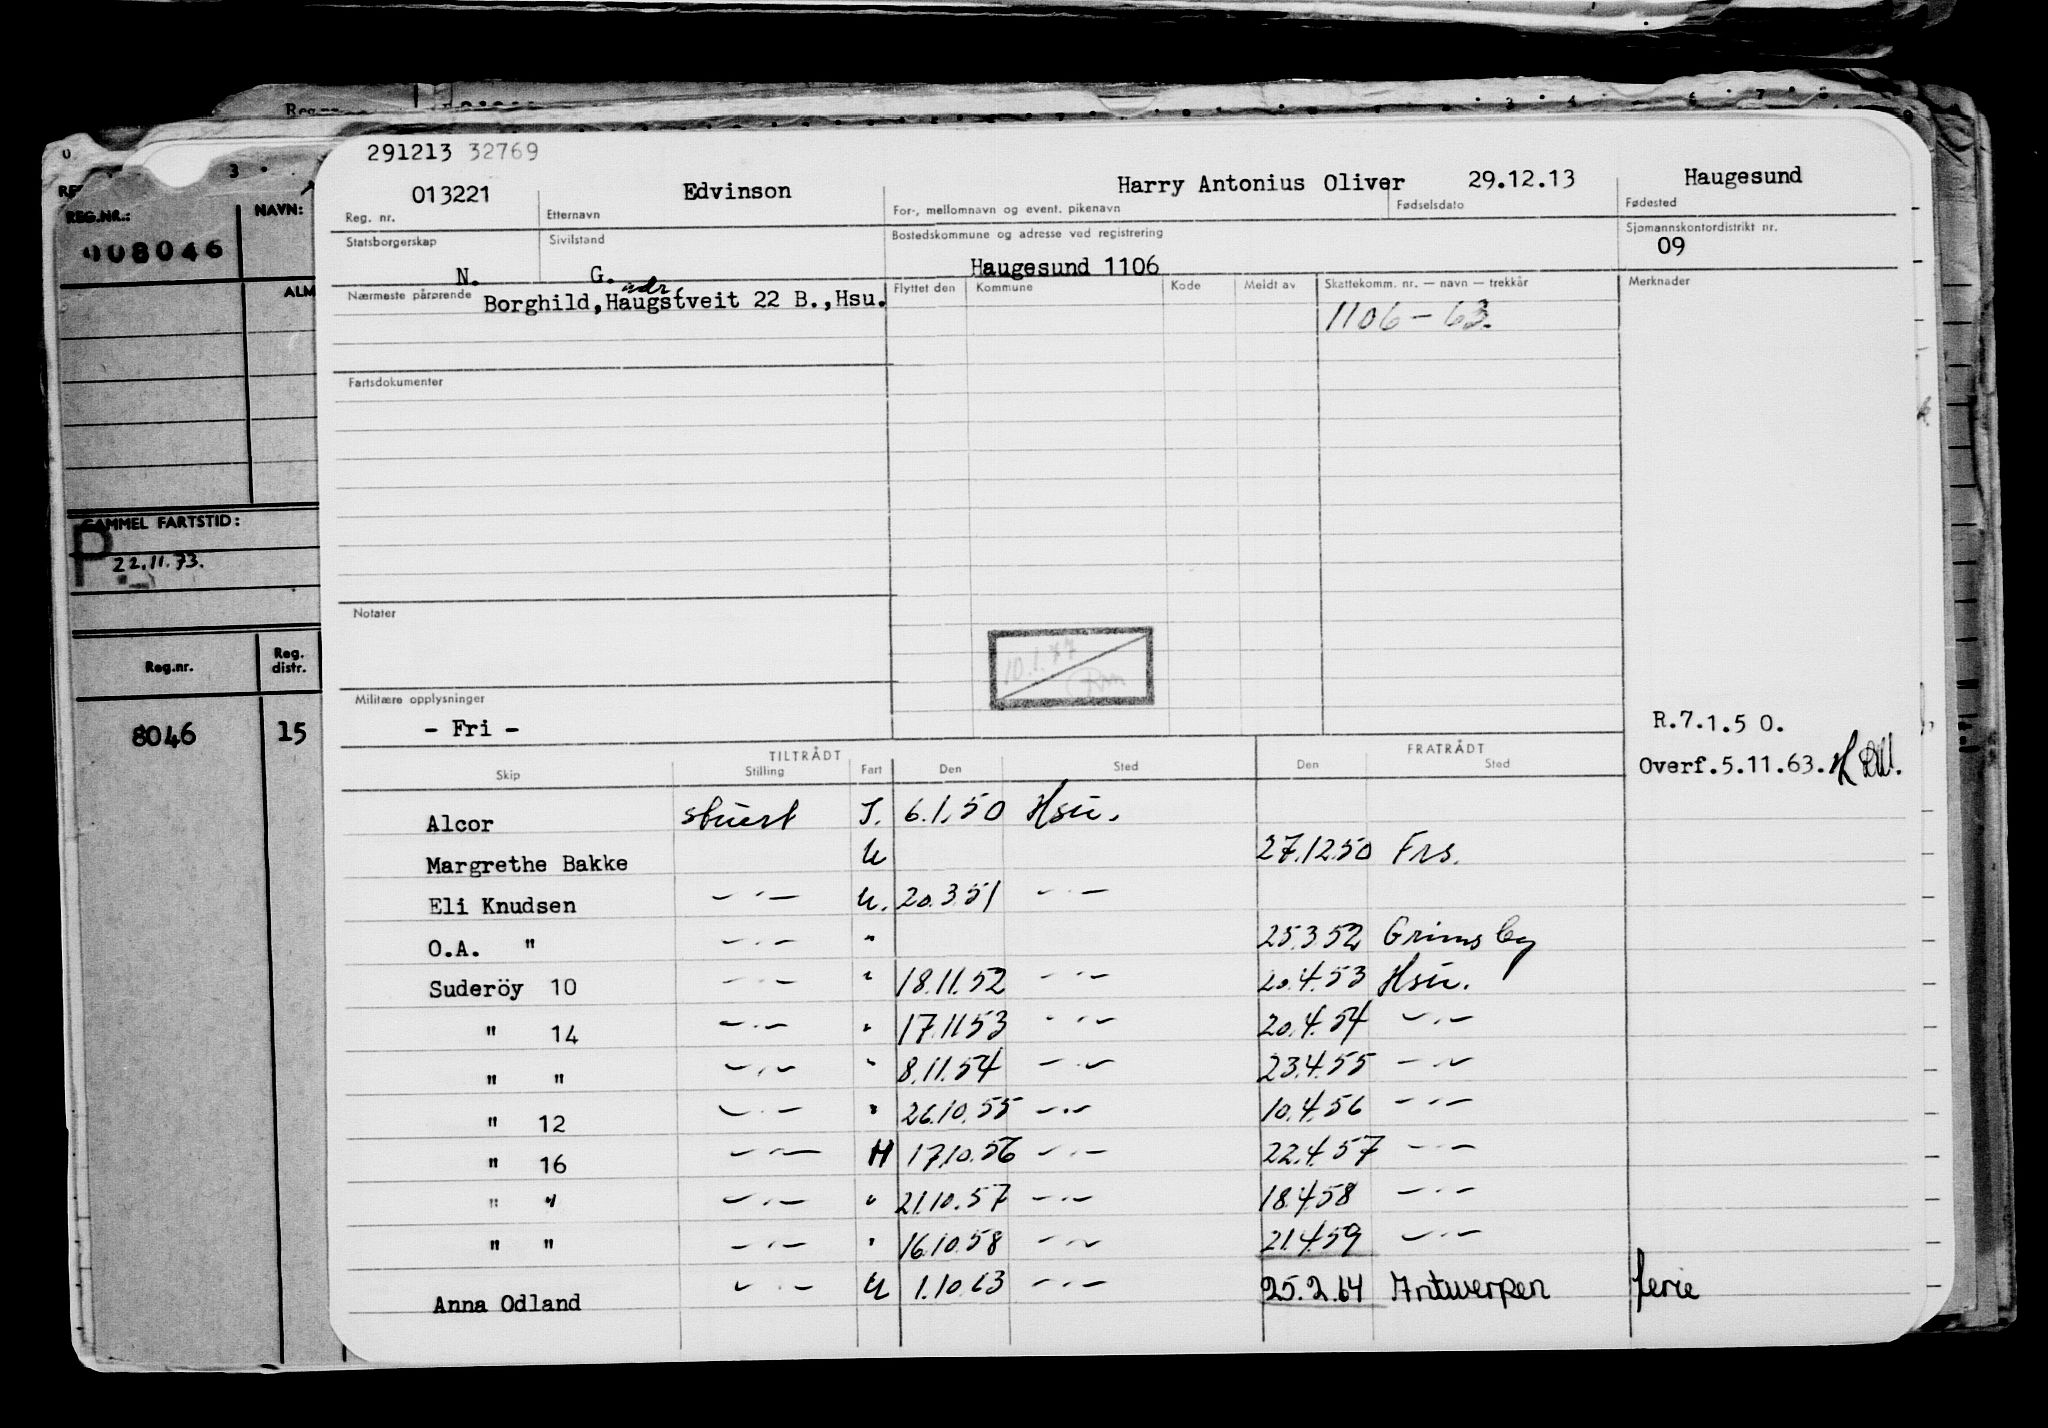 291213 32769
013221 Edvinson Harry Antonius Oliver 29.12.13 Haugesund
Reg. nr. Etternavn For-, mellomnavn og event. pikenavn Fødselsdato Fødested
Statsborgerskap Sivilstand Bostedskommune og adresse ved registrering Sjømannskontordistrikt nr.
N. G. Haugesund 1106 09
Nærmeste pårørende Flyttet den Kommune Kode Meldt av Skattekomm. nr. — navn — trekkår Merknader
adr
Borghild, Haugstveit 22 B., Hsu. 1106 - 63.
Fartsdokumenter
Notater
10.1.77
Militære opplysninger
- Fri -
R.7.1.50.
Overf.5.11.63.
TILTRÅDT FRATRÅDT
Skip Stilling Fart Den Sted Den Sted
Alcor stuert I. 6.1.50 Hsu.
Margrethe Bakke U 27.12.50 Frs.
Eli Knudsen —"— U. 20.3.51 —"—
O.A. " —"— " 25.3.52 Grimsby
Suderöy 10 —"— " 18.11.52 —"— 20.4.53 Hsu.
" 14 —"— " 17.11.53 —"— 20.4.54 —"—
" " —"— " 8.11.54 —"— 23.4.55 —"—
" 12 —"— " 26.10.55 —"— 10.4.56 —"—
" 16 —"— H 17.10.56 —"— 22.4.57 —"—
" " —"— " 21.10.57 —"— 18.4.58 —"—
" " —"— " 16.10.58 —"— 21.4.59 —"—
Anna Odland —"— U 1.10.63 —"— 25.2.64 Antwerpen ferie
REG.NR.: NAVN:
008046
ALM
GAMMEL FARTSTID:
P
22.11.73.
Reg.nr. Reg. distr.
8046 15